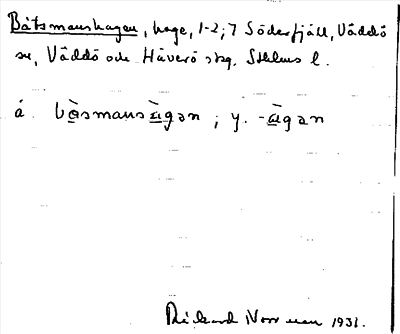 Båtsmanshagen, hage, 1-2; 7 Söderfjäll, Väddö
sn, Väddö och Häverö skg. Sthlms l.
á. bà̱smansà̱gən ; y. -à̱gən
Rickard Norrman 1931.